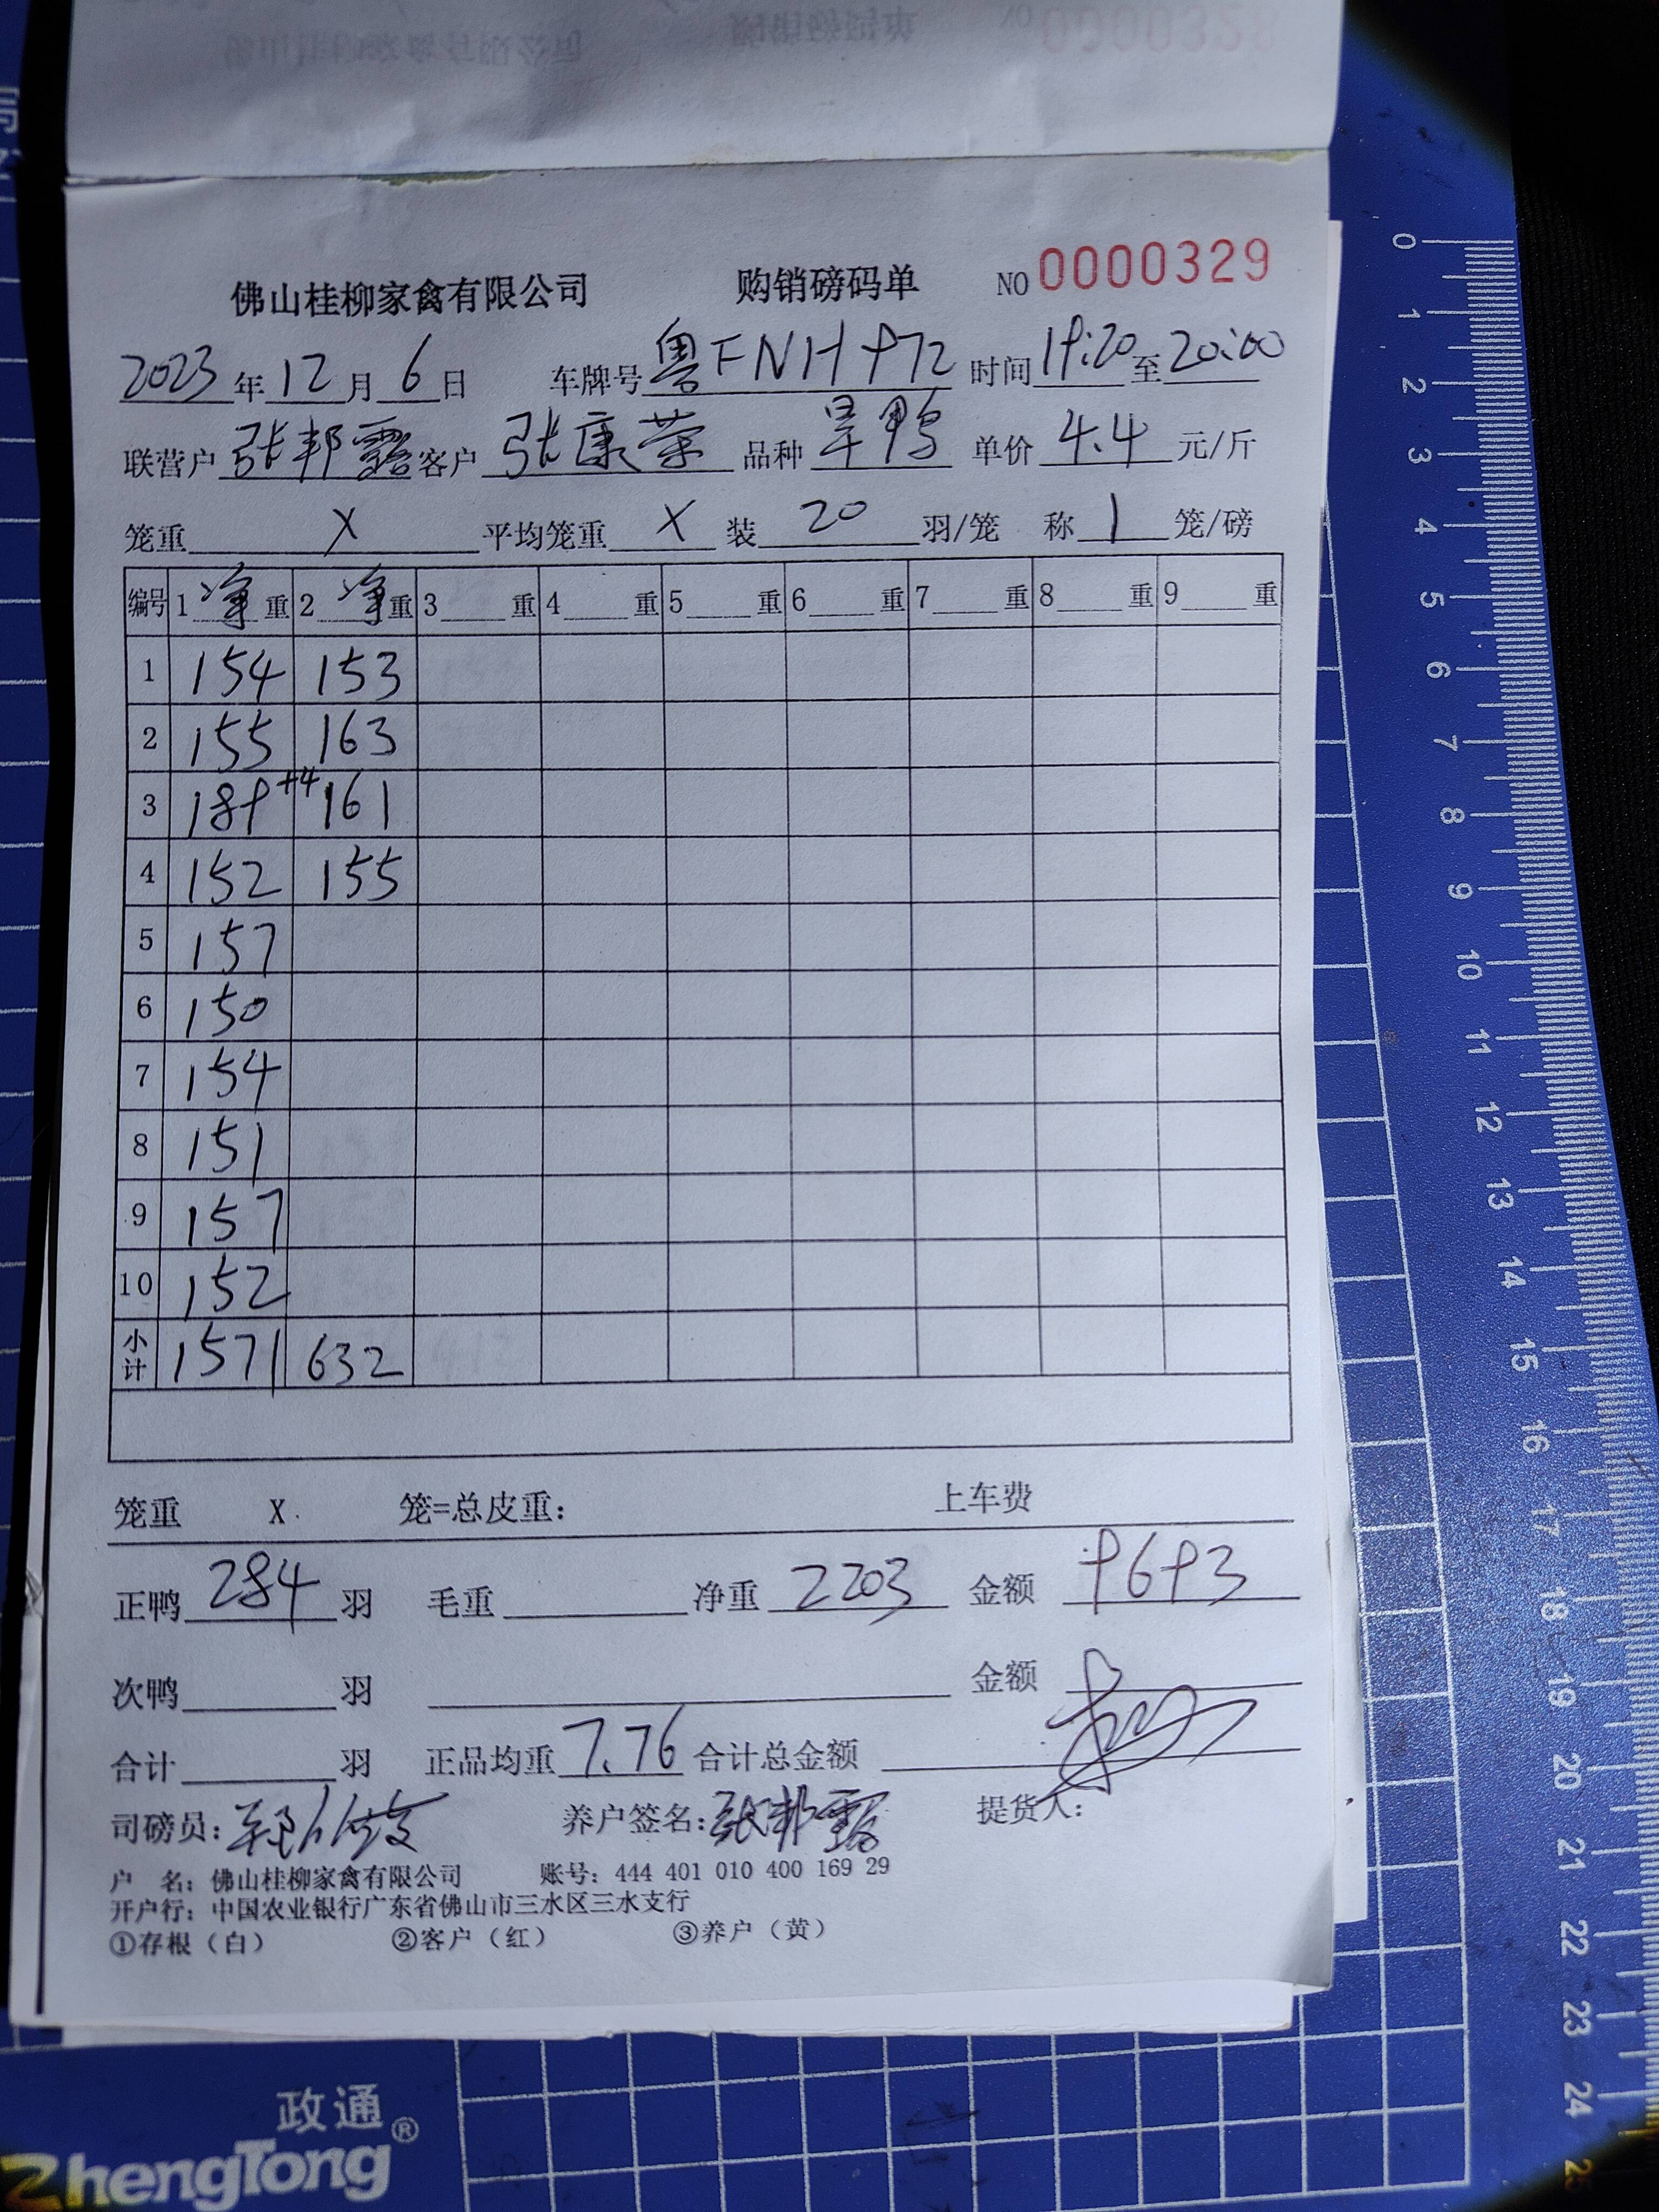 佛山桂柳家禽有限公司 购销磅码单 NO 0000329
2023年12月6日 车牌号粤FNH972 时间19:20至20:00
联营户张邦露客户张康荣 品种旱鸭 单价4.4元/斤
笼重X平均笼重X装20羽/笼 称1笼/磅
编号 1净重 2净重 3重 4重 5重 6重 7重 8重 9重
1 154 153
2 155 163
3 189+4 161
4 152 155
5 157
6 150
7 154
8 151
9 157
10 152
小计 1571 632
笼重 X 笼=总皮重： 上车费
正鸭284羽 毛重 净重2203 金额9693
次鸭 羽 金额
合计 羽 正品均重7.76合计总金额
司磅员： 养户签名：张邦露 提货人：
户 名：佛山桂柳家禽有限公司 账号：444 401 010 400 169 29
开户行：中国农业银行广东省佛山市三水区三水支行
①存根（白） ②客户（红） ③养户（黄）
政通®
ZhengTong
0
1
2
3
4
5
6
7
8
9
10
11
12
13
14
15
16
17
18
19
20
21
22
23
24